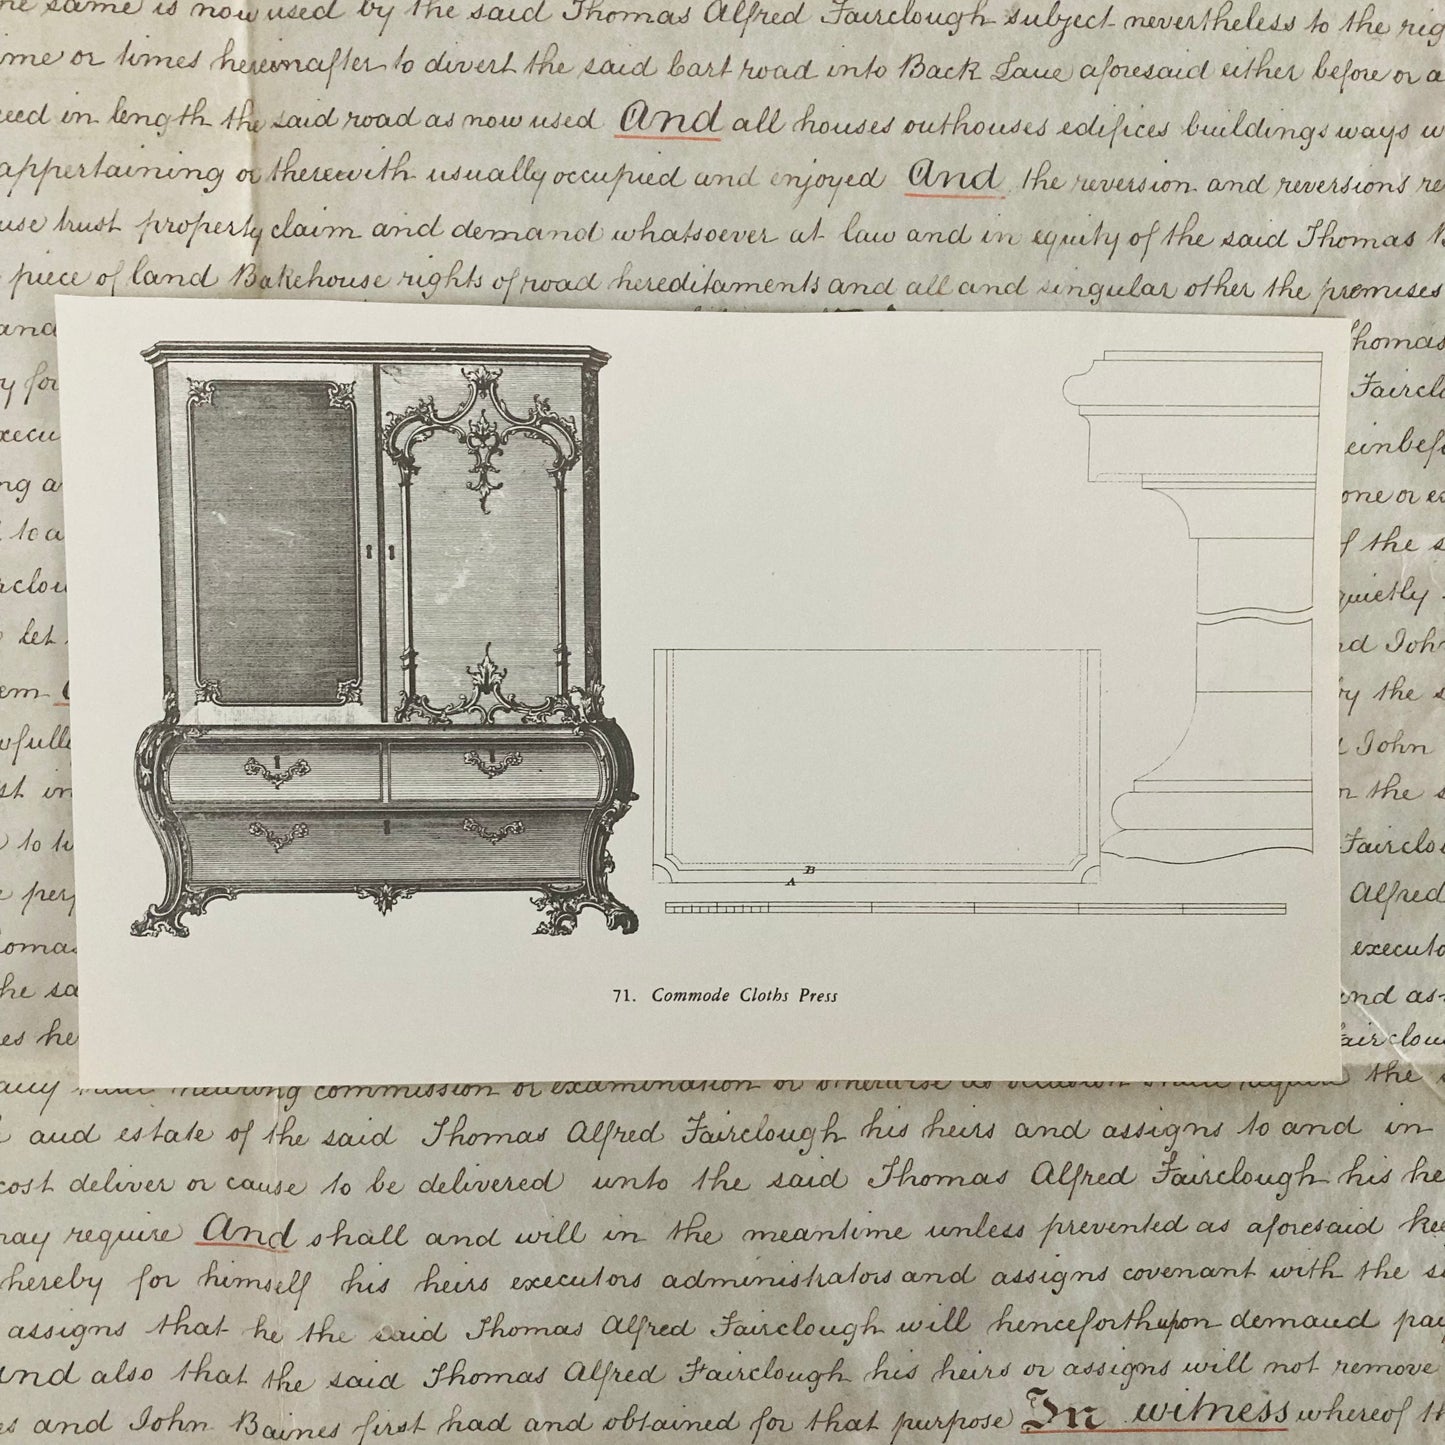 same is now used by the said Thomas Alfred Fairclough subject nevertheless to the
or times hereinafter to divert the said Cart road into Back Lane aforesaid either before or
in length the said road as now used And all houses outhouses edifices buildings ways
appertaining or therewith usually occupied and enjoyed And the reversion and reversions
trust property claim and demand whatsoever at law and in equity of the said Thomas
piece of land Bakehouse rights of road hereditaments and all and singular other the premises
and
Thomas
for
Fairclo
execu
einbefo
ng a
one or
to a
of the
rclou
quietly
let
nd John
em
by the
wfully
John
st in
the
to
Fairclou
per
Alfred
Thomas
executo
he sa
and as
es he
Fairclou
B
A
71. Commode Cloths Press
commission or examination or otherwise as occasion shall require the
and estate of the said Thomas Alfred Fairclough his heirs and assigns to and in
cost deliver or cause to be delivered unto the said Thomas Alfred Fairclough his he
may require And shall and will in the meantime unless prevented as aforesaid kee
hereby for himself his heirs executors administrators and assigns covenant with the
assigns that he the said Thomas Alfred Fairclough will henceforth upon demand pay
And also that the said Thomas Alfred Fairclough his heirs or assigns will not remove
es and John Baines first had and obtained for that purpose In witness whereof